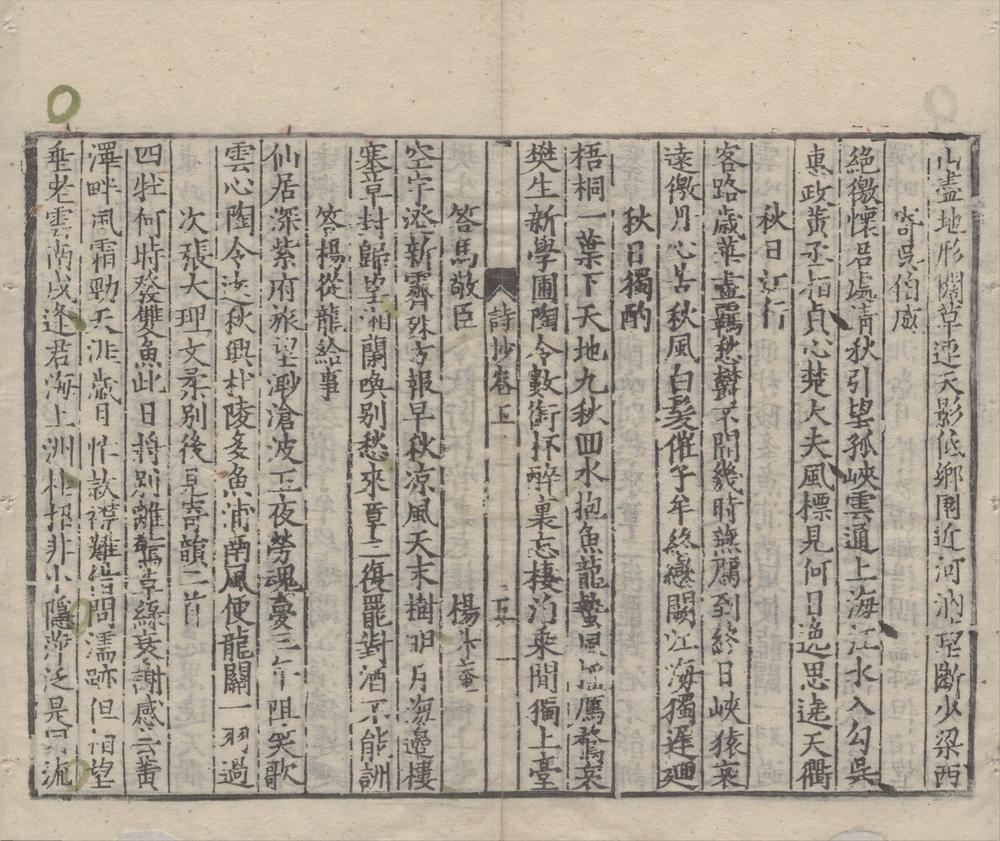 山盡地形闊草連天影低鄉園近河汭望斷少梁西
寄吳伯威
絕徼懷君處清秋引望孤峽雲通上海江水入勾吳
惠政黃丞相貞心楚大夫風標見何日逸思遶天衢
秋日江行
客路歲華盡羈愁鬱不開幾時燕鴈到終日峽猿哀
遠徼丹心苦秋風白髮催子牟終戀闕江海獨遲迴
秋日獨酌
梧桐一葉下天地九秋回水抱魚龍蟄風高鷹鶩哀
樊生新學圃陶令數銜杯醉裏忘棲泊来閒獨上臺
詩抄卷五
二十五
答馬敬臣
楊升菴
空宇澄新霽殊方報早秋凉風天末樹明月海邊樓
塞草封歸望湘蘭喚別愁來章三復罷對酒不能訓
答楊從龍給事
仙居深紫府旅望渺滄波五夜勞魂夢三年阻笑歌
雲心陶令逸秋興杜陵多魚浦南風便龍關一羽過
次張大理文柔別後見寄韻二首
四牡何時發雙魚此日將別離驚草綠衰謝感雲黃
澤畔風霜勁天涯歲月忙款襟難借問濡跡但相望
垂老雲南戍逢君海上洲相招非小隱薄泛是同流